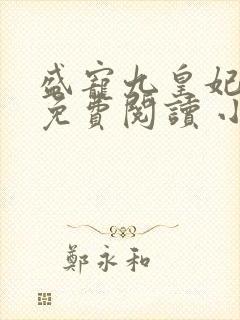 盛寵九皇妃
免費閱讀 小
鄭永和